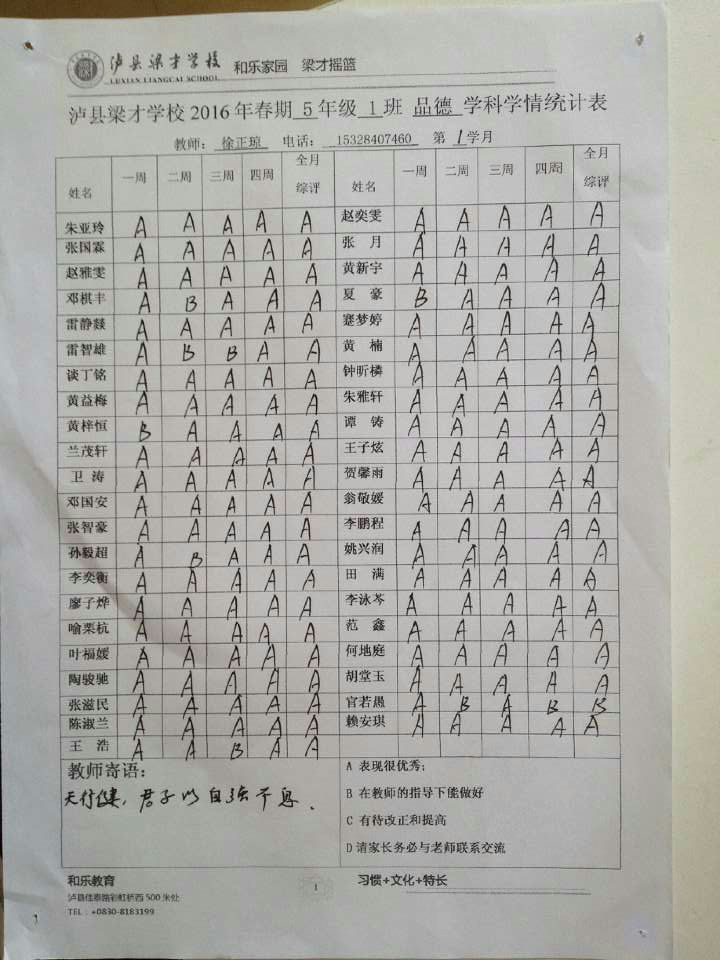 泸县梁才学校 和乐家园 梁才摇篮
LUXIAN LIANGCAI SCHOOL
泸县梁才学校 2016 年春期 5 年级 1 班 品德 学科学情统计表
教师: 徐正琼 电话: 15328407460 第 1 学月
姓名 一周 二周 三周 四周 全月综评 姓名 一周 二周 三周 四周 全月综评
朱亚玲 A A A A A 赵奕雯 A A A A A
张国霖 A A A A A 张 月 A A A A A
赵雅雯 A A A A A 黄新宇 A A A A A
邓棋丰 A B A A A 夏 豪 B A A A A
雷静燚 A A A A A 蹇梦婷 A A A A A
雷智雄 A B B A A 黄 楠 A A A A A
谈丁铭 A A A A A 钟昕橉 A A A A A
黄益梅 A A A A A 朱雅轩 A A A A A
黄梓恒 B A A A A 谭 铸 A A A A A
兰茂轩 A A A A A 王子炫 A A A A A
卫 涛 A A A A A 贺馨雨 A A A A A
邓国安 A A A A A 翁敬媛 A A A A A
张智豪 A A A A A 李鹏程 A A A A A
孙毅超 A B A A A 姚兴润 A A A A A
李奕衡 A A A A A 田 满 A A A A A
廖子烨 A A A A A 李泳芩 A A A A A
喻栗杭 A A A A A 范 鑫 A A A A A
叶福媛 A A A A A 何地庭 A A A A A
陶骏驰 A A A A A 胡堂玉 A A A A A
张滋民 A A A A A 官若愚 A B A B B
陈淑兰 A A A A A 赖安琪 A A A A A
王 浩 A A B A A
教师寄语:
天行健,君子以自强不息.
A 表现很优秀;
B 在教师的指导下能做好
C 有待改正和提高
D 请家长务必与老师联系交流
和乐教育 1 习惯+文化+特长
泸县佳泰路彩虹桥西 500 米处
TEL : +0830-8183199